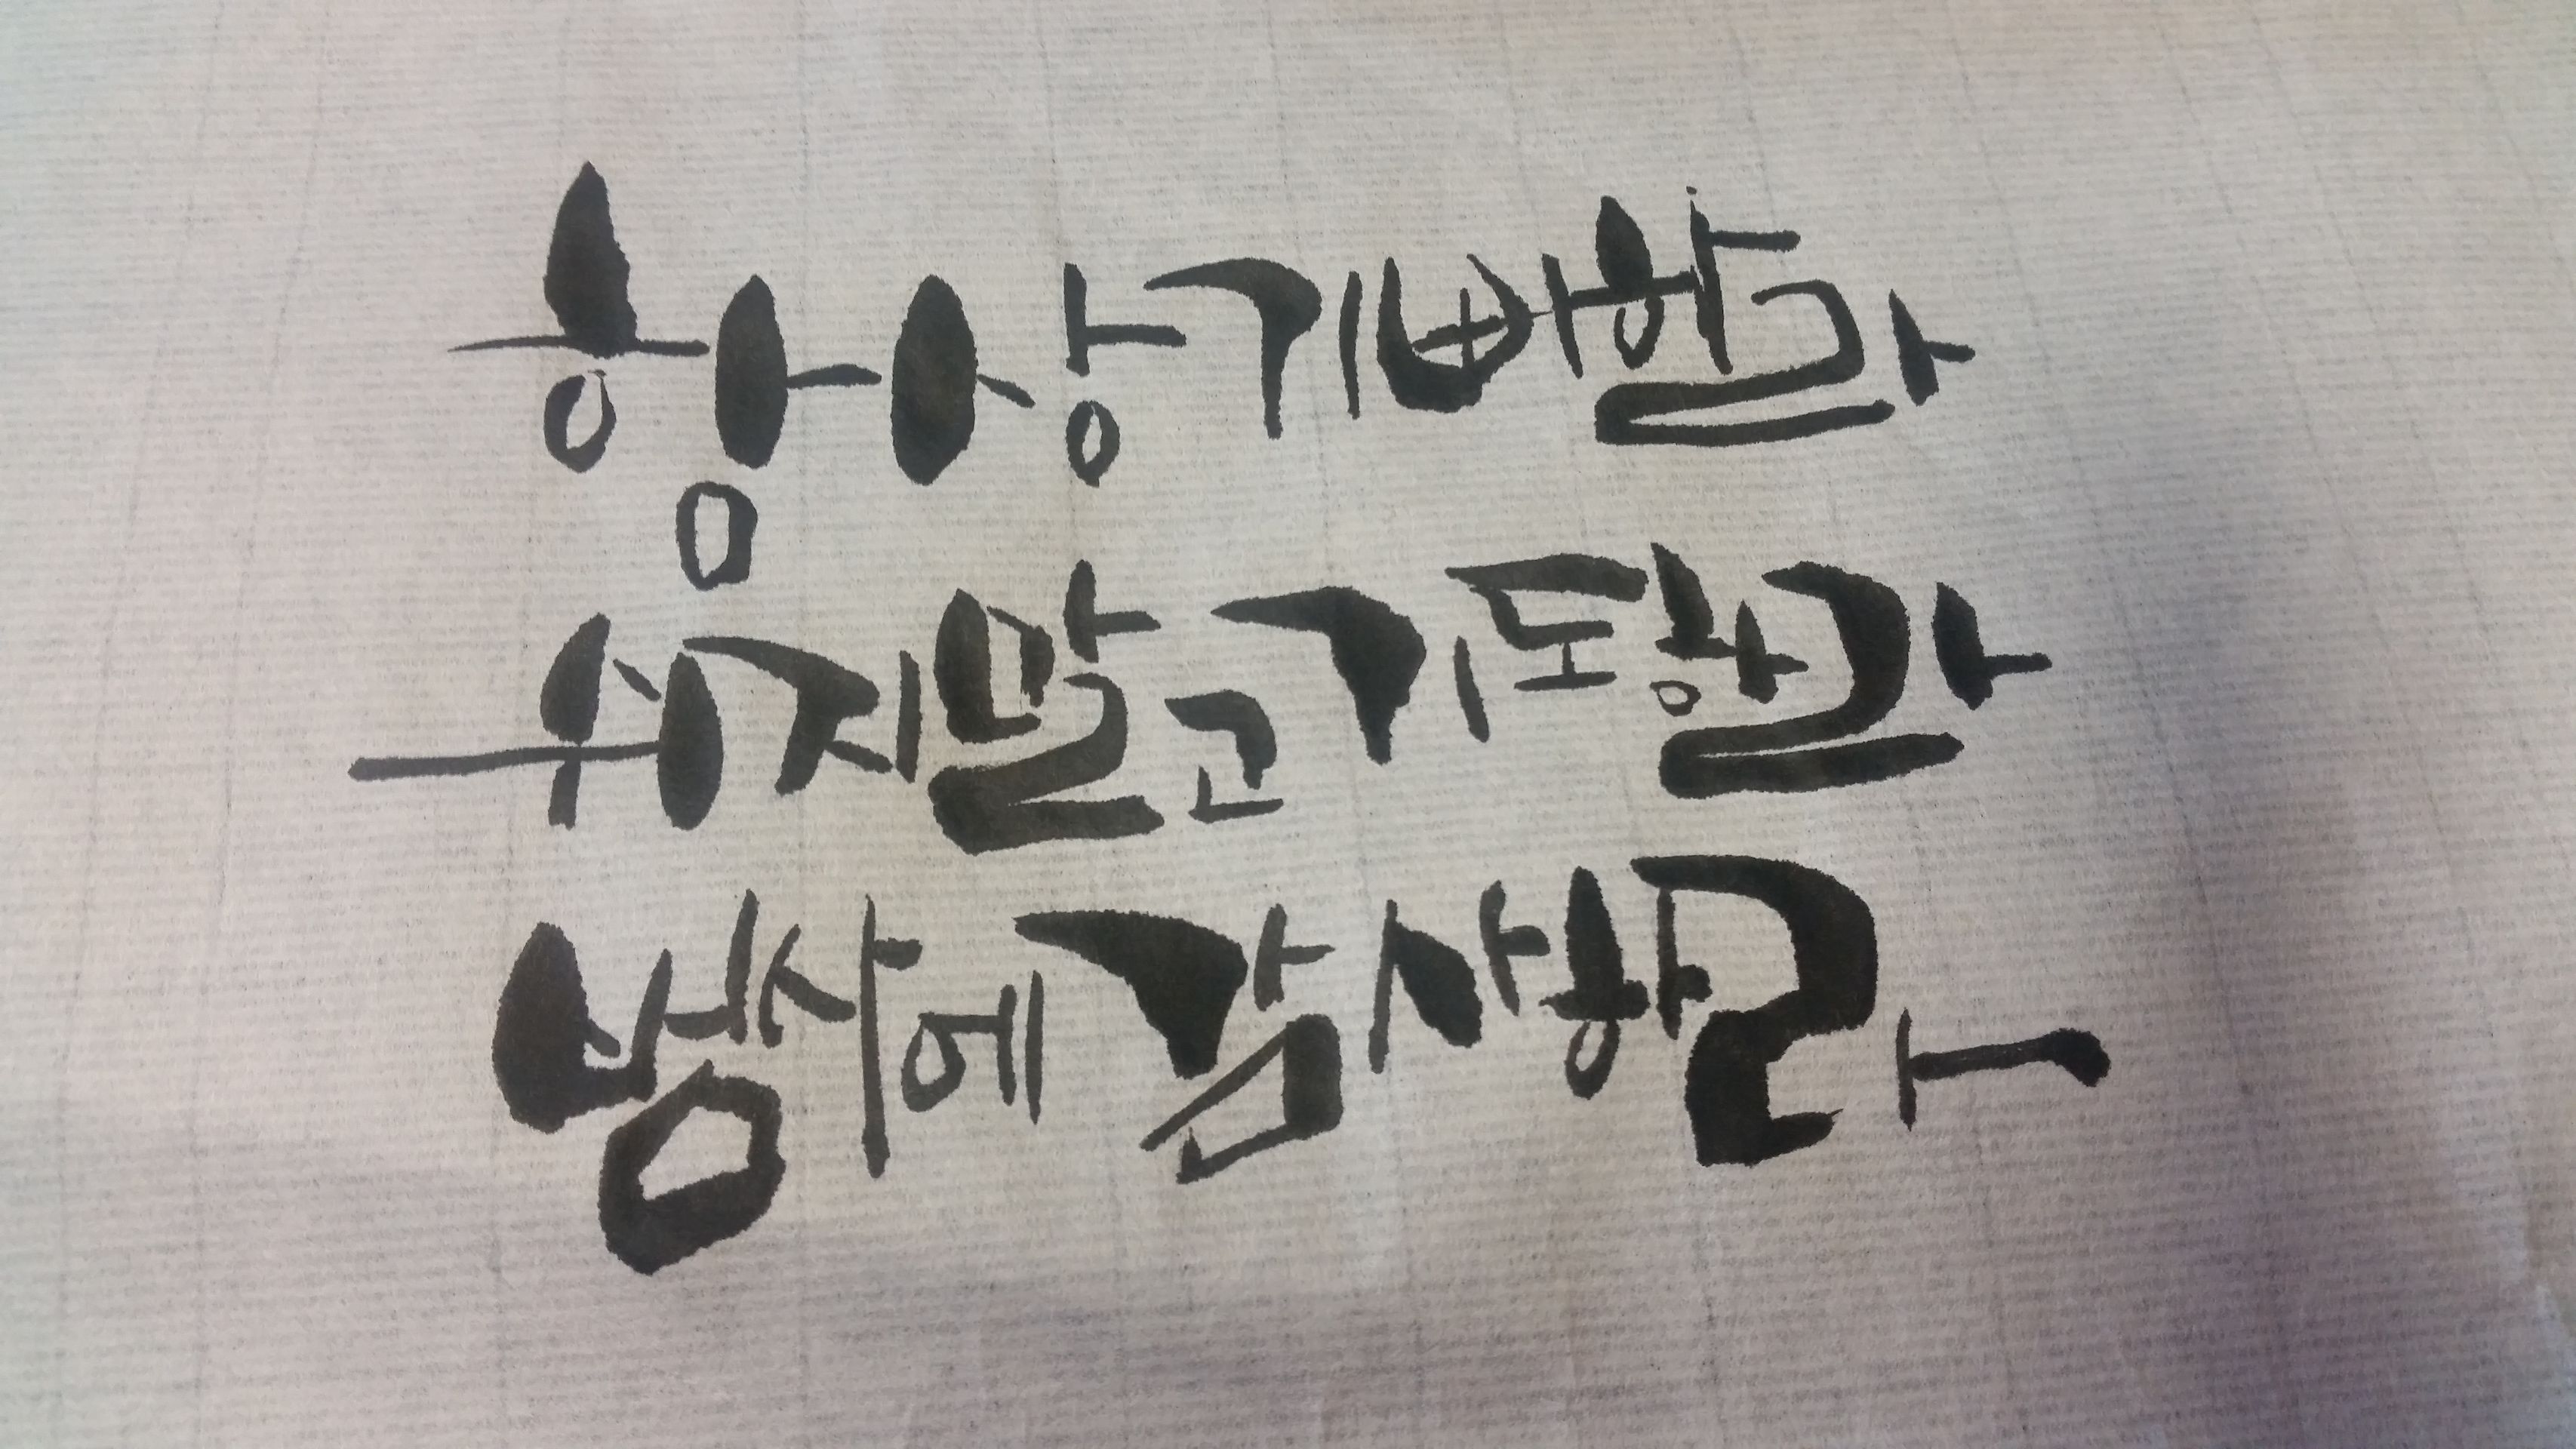 항상 기뻐하라
쉬지말고 기도하라
범사에 감사하라